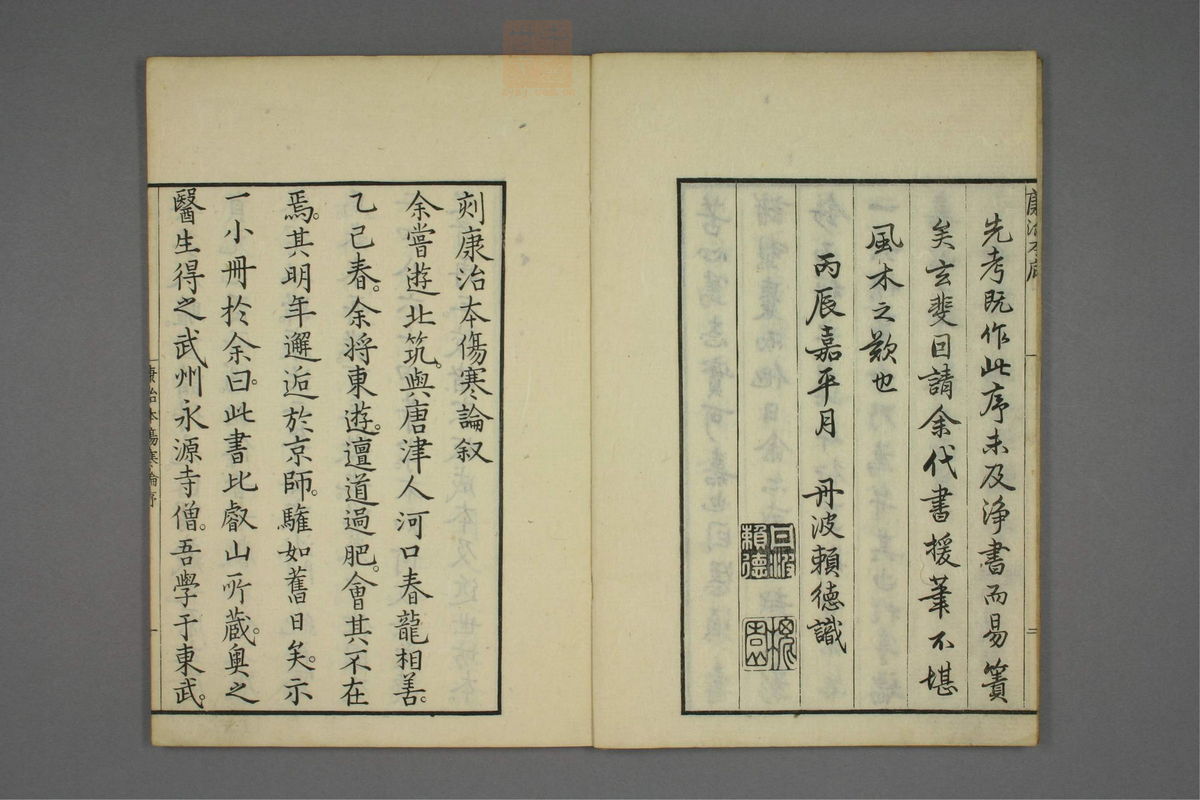 康治本序
先考既作此序未及浄書而易簀
矣玄斐因請余代書援筆不堪
風木之歎也
丙辰嘉平月 丹波賴德識
丹波
賴德
二
刻康治本傷寒論叙
余嘗遊北筑。與唐津人河口春龍相善。
乙巳春。余將東遊。邅道過肥。會其不在
焉。其明年邂逅於京師。驩如舊日矣。示
一小冊於余曰。此書比叡山所藏。奧之
醫生得之武州永源寺僧。吾學于東武。
康治本傷寒論序
一